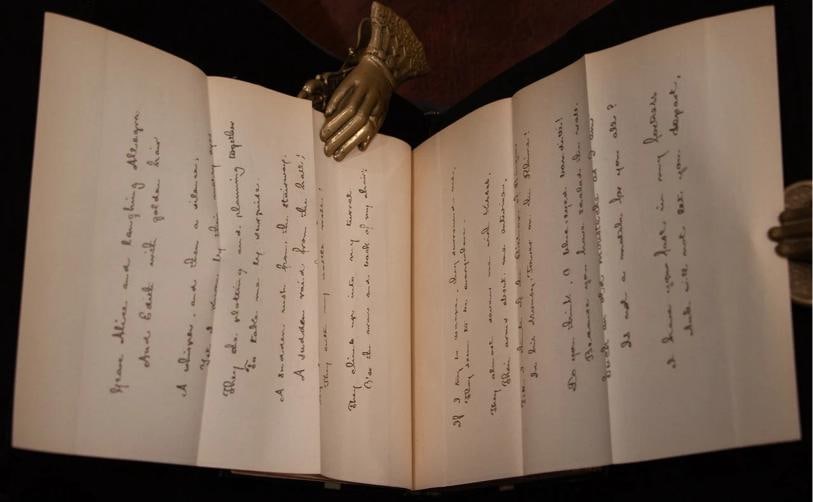 Grave Alice and laughing Allegra
And Edith with golden hair
A whisper, and then a silence;
Yet I know by their merry eyes
They are plotting and planning together
To take me by surprise.
A sudden rush from the stairway,
A sudden raid from the hall;
They enter my castle wall;
They climb up into my turret
O'er the arms and back of my chair;
If I try to escape, they surround me;
They seem to be everywhere.
They almost devour me with kisses,
Their arms about me entwine,
Till I think of the Bishop of Bingen
In his Mouse-Tower on the Rhine!
Do you think, O blue-eyed banditti!
Because you have scaled the wall,
Such an old mustache as I am
Is not a match for you all?
I have you fast in my fortress
And will not let you depart,